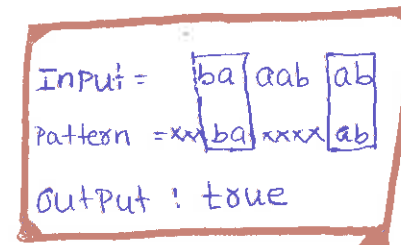 Input = ba aab ab
Pattern = xxx ba xxxx ab
Output : true